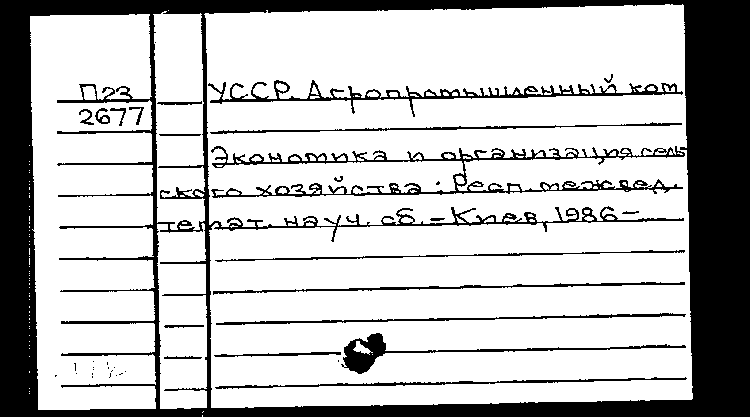 П23
2677
УССР. Агропромышленный ком
Экономика и организация сель
ского хозяйства : Респ. межвед.
темат. науч. сб. – Киев, 1986 –